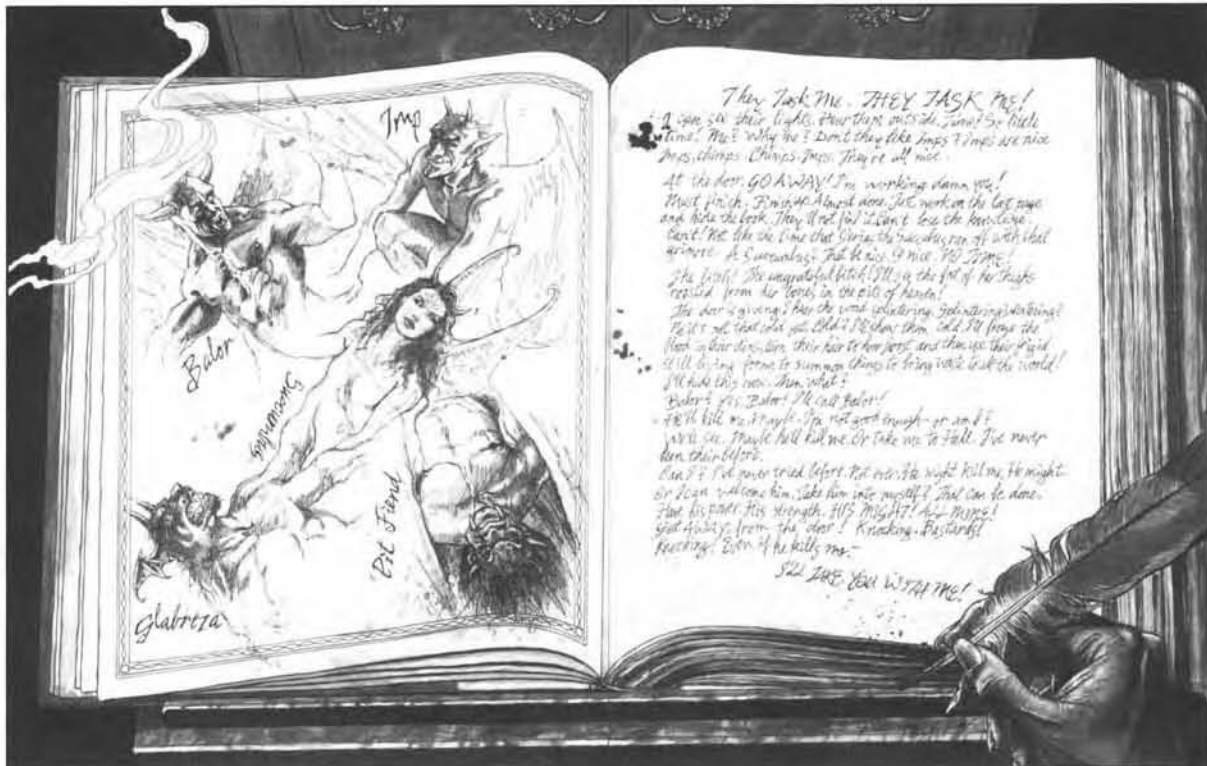 Imp
Balor
Pit Fiend
Glabreza
They Task Me. THEY TASK ME!
I can see their lights. Hear them outside. Time! So little
time! Me? Why me? Don't they like Imps? Imps are nice
Imps, chimps. Chimps. Imps. They're all nice.
At the door. GO AWAY! I'm working damn you!
Must finish. Almost done. Just work on the last page
and hide the book. They'll not find it. Can't lose the knowledge.
Can't! Not like the time that the Succubus ran off with that
grimoire. A Succubus? That'd be nice. So nice. NO TIME!
The bitch. The ungrateful bitch! I'll the fat of her thighs
roasted from her bones in the pits of heaven!
The door is giving. I hear the wood splintering. Splintering!
that cold Cold? I'll show them cold. I'll freeze the
blood in their their hair to and then use their frigid
still living forms to summon things to bring woe to all the world!
I'll hide this now. Then what?
Balor? Yes. Balor! I'll call Balor!
He'll kill me. Maybe. I'm not good enough-or am I?
we'll see. Maybe he'll kill me. Or take me to Hell. I've never
been their before.
Can I? I've never tried before. Not ever. He might kill me. He might.
Or I can welcome him. Take him into myself? That can be done.
Have his power. His strength. HIS MIGHT! ALL MINE!
Get Away from the door! Knocking. Bastards!
Knocking! Even if he kills me-
I'LL TAKE YOU WITH ME!